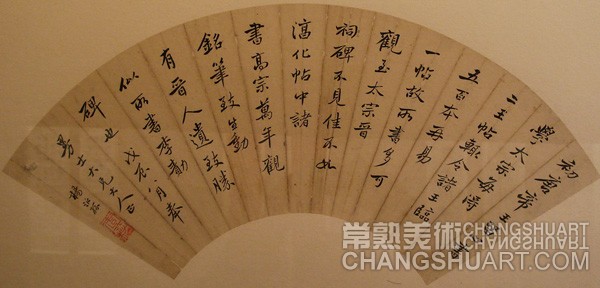 初唐帝王書
學太宗每得
二王帖輒令諸王臨
五百本再易
一帖故所書多可
觀至太宗晉
祠碑不見佳不如
淳化帖中諸
書高宗萬年觀
銘筆致生動
有晉人遺致勝
似所書李勣
碑也 戊辰八月奉
勇士大兄大人正
楊泗孫
常熟美術 CHANGSHUART
CHANGSHUART.COM